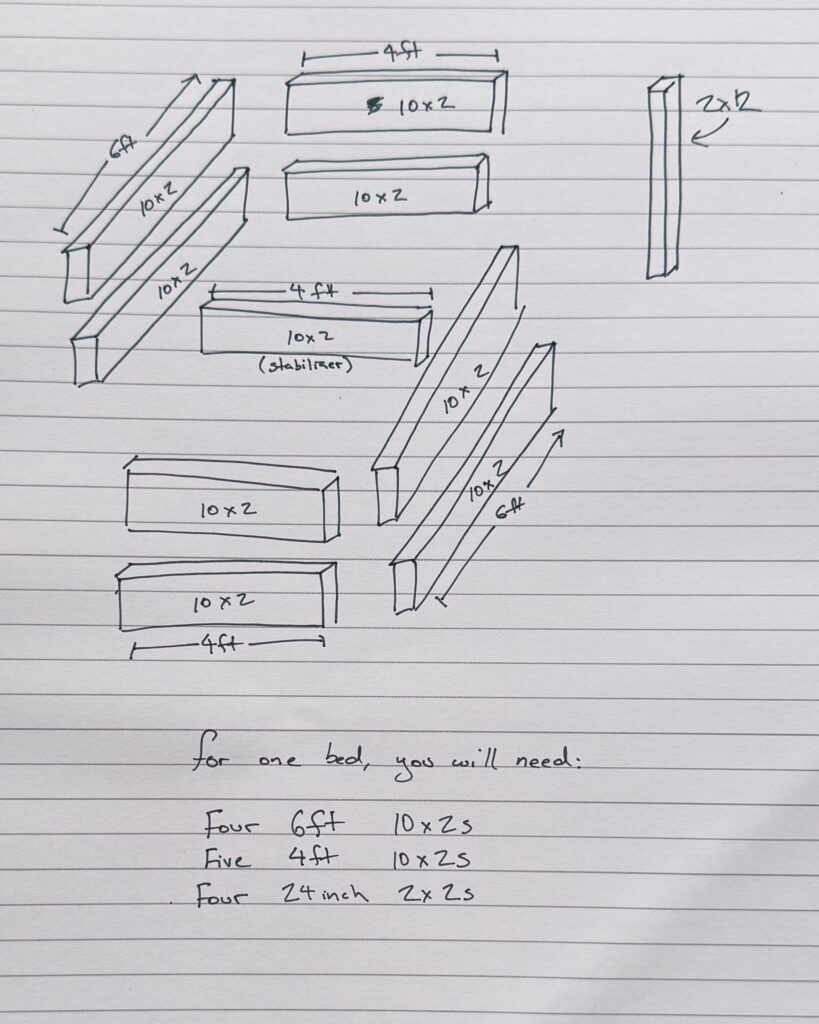 4ft
6ft
10x2
2x12
10x2
10x2
10x2
4 ft
10x2
(stabiliser)
10x2
10x2
6ft
10x2
10x2
4ft
for one bed, you will need:
Four 6ft 10x2s
Five 4ft 10x2s
Four 24inch 2x2s